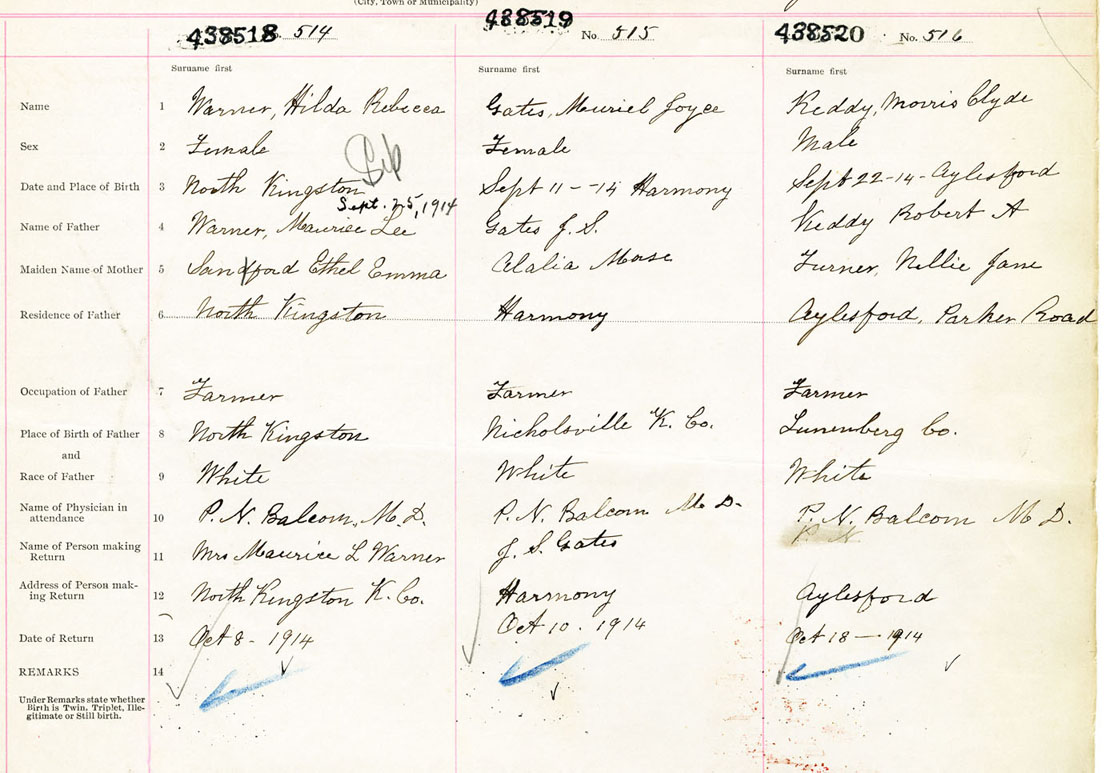 (City, Town or Municipality)
438518 514
438519 No. 515
438520 No. 516
Surname first Surname first Surname first
Name 1 Warner, Hilda Rebecca Gates, Muriel Joyce Keddy, Morris Clyde
Sex 2 Female Female Male
Date and Place of Birth 3 North Kingston Sept 11 - -14 Harmony Sept 22-14- Aylesford
Sept. 25, 1914
Name of Father 4 Warner, Maurice Lee Gates J. S. Keddy Robert A
Maiden Name of Mother 5 Sandford Ethel Emma Alalia Turner, Nellie Jane
Residence of Father 6 North Kingston Harmony Aylesford, Parker Road
Occupation of Father 7 Farmer Farmer Farmer
Place of Birth of Father 8 North Kingston Nicholsville K. Co. Lunenberg Co.
and
Race of Father 9 White White White
Name of Physician in
attendance 10 P. N. Balcom, M. D. P. N. Balcom M. D. P. N. Balcom M. D.
P. N
Name of Person making
Return 11 Mrs Maurice L Warner J. S. Gates
Address of Person mak-
ing Return 12 North Kingston K. Co. Harmony Aylesford
Date of Return 13 Oct 8 - 1914 Oct 10 - 1914 Oct 18 - 1914
REMARKS 14
Under Remarks state whether
Birth is Twin, Triplet, Ille-
gitimate or Still birth.